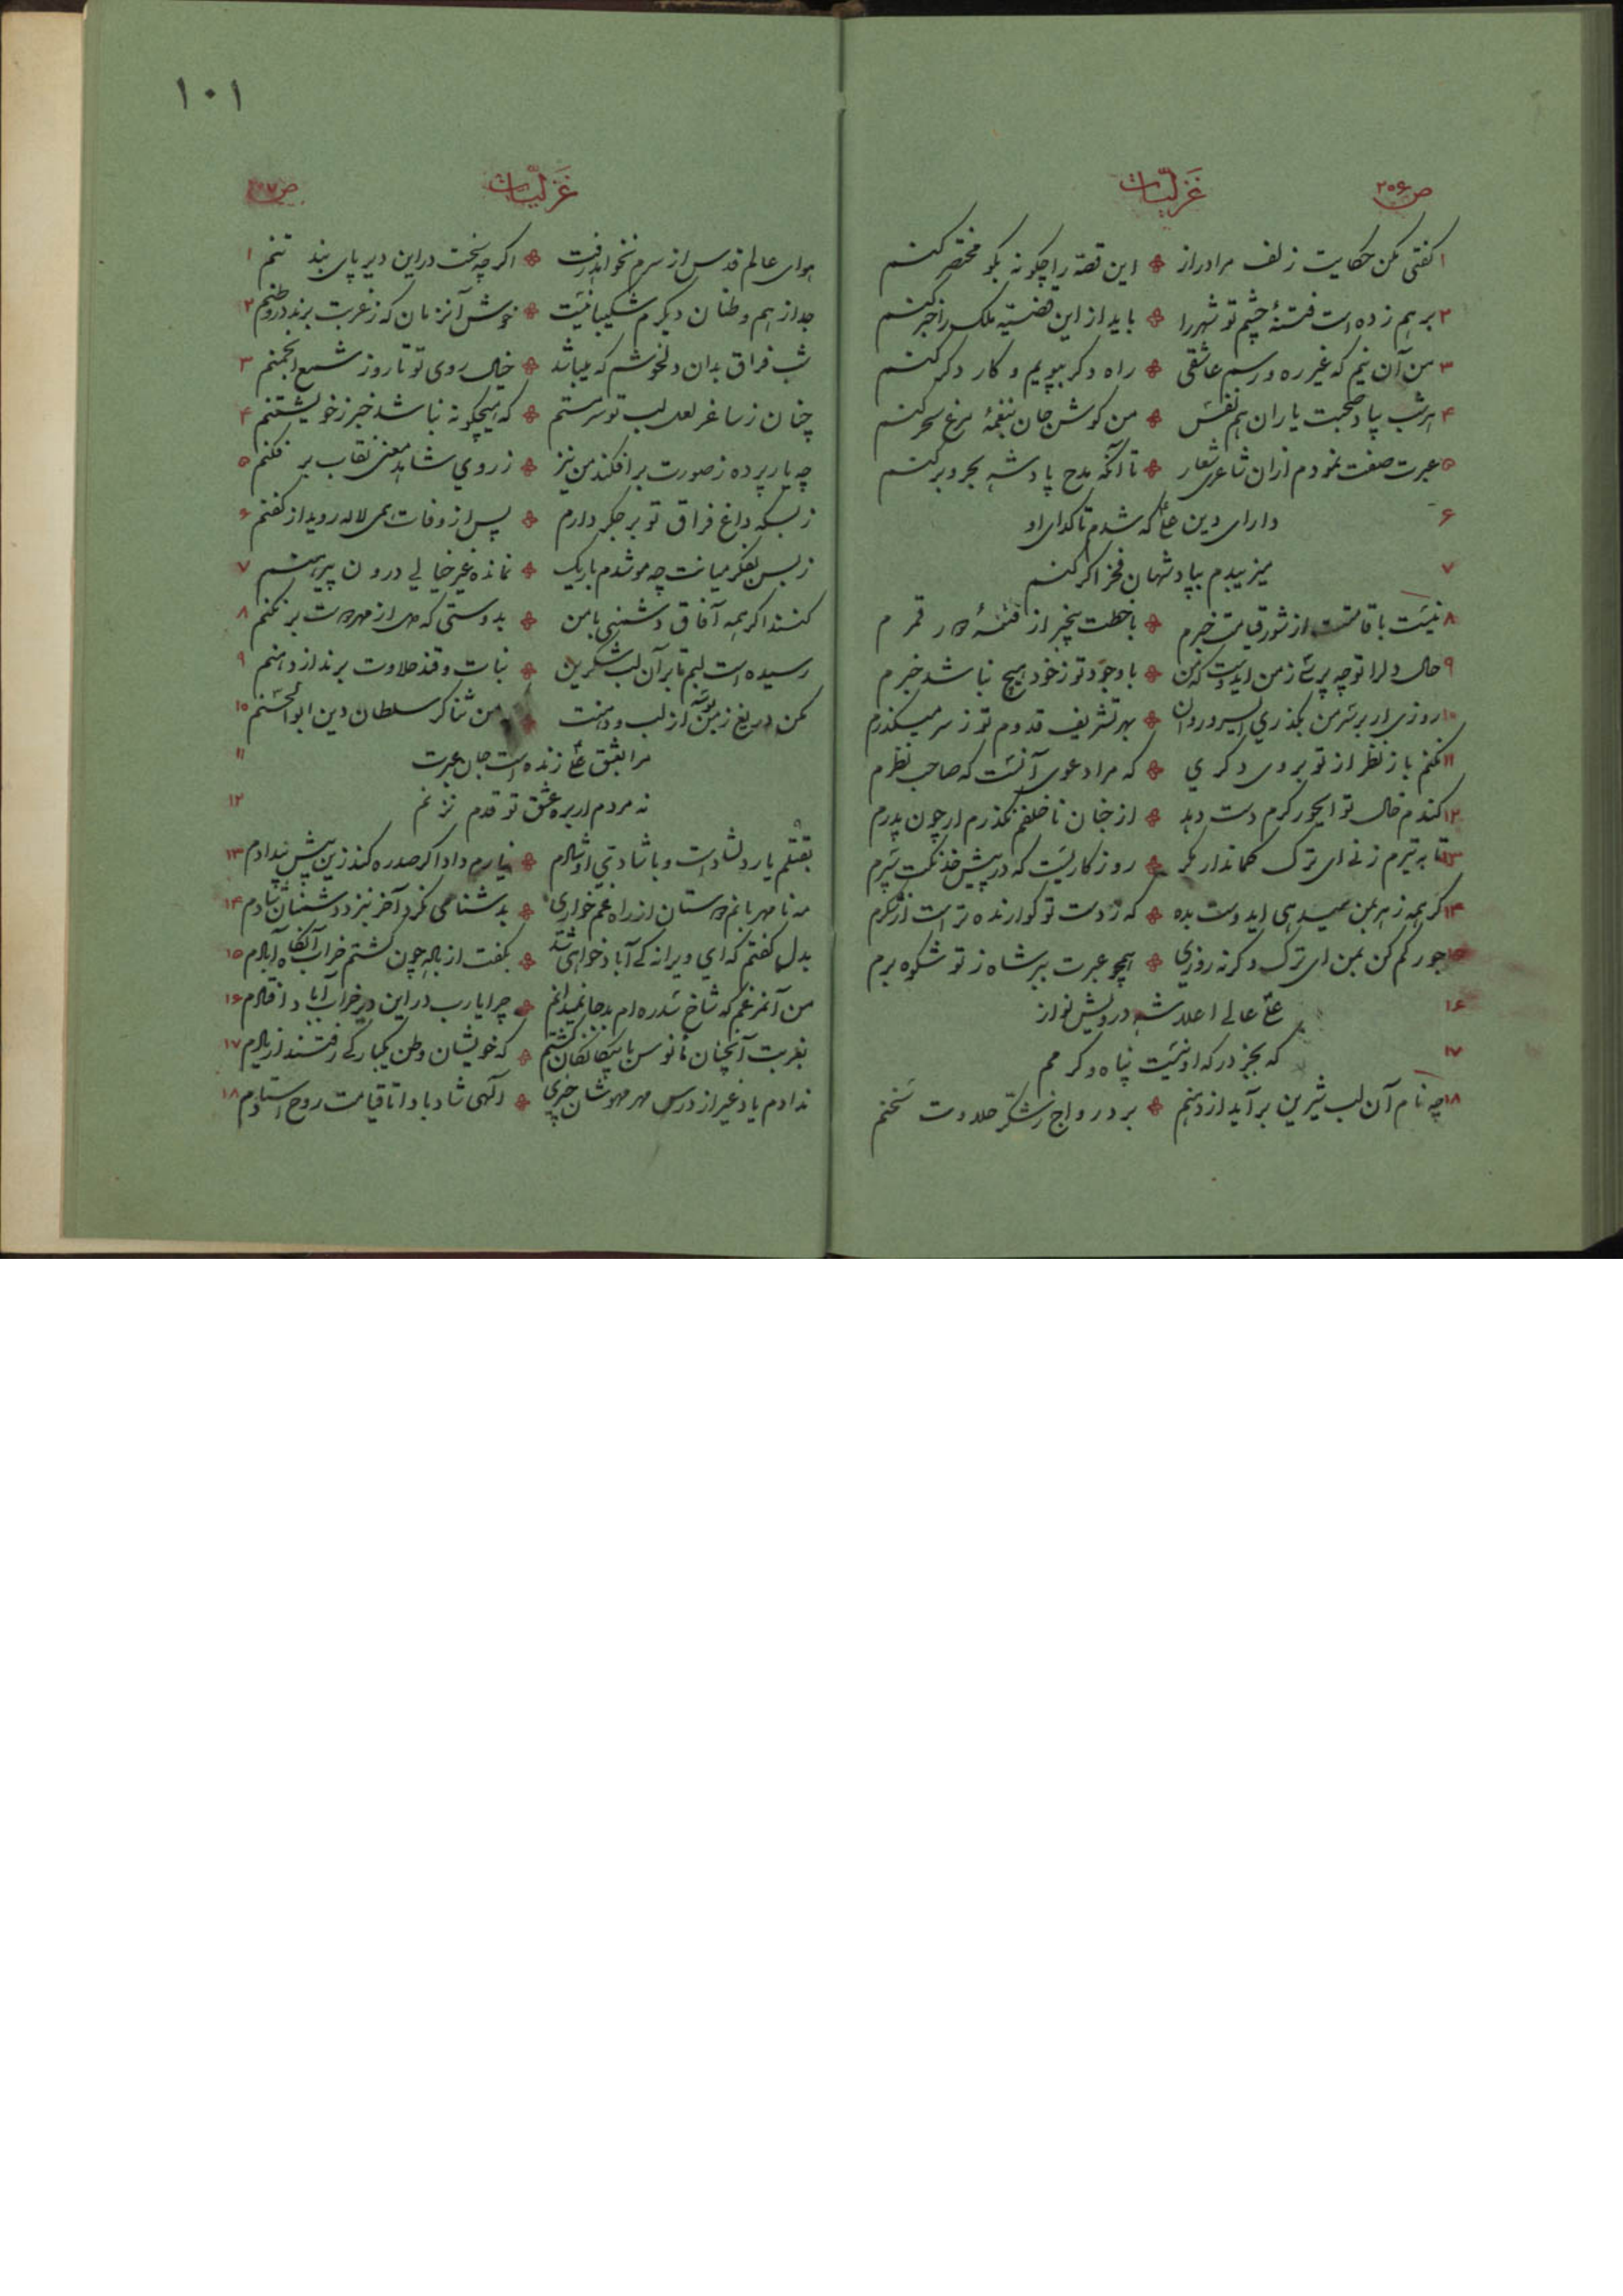 ص ۲۰۶ غزلیّات
۱ کفتی مکن حکایت زلف مرا دراز این قصّه را چکونه بکو مختصر کنم
۲ برهم زده است فتنهٔ چشم تو شهر را باید از این قضیّه ملک را خبر کنم
۳ من آن نیم که غیر ره و رسم عاشقی راه دکر بپویم و کار دکر کنم
۴ هر شب بیاد صحبت یاران هم نفس من کوش جان بنغمهٔ مرغ سحر کنم
۵ عبرت صفت نمودم ازان شاعری شعار تا آنکه مدح پادشه بحر و بر کنم
۶ دارای دین علی که شدم تا کدای او
۷ میزیبدم بپادشهان فخر اکر کنم
۸ نیست با قامتت از شور قیامت خبرم با خطت بیخبر از فتنهٔ دور قمرم
۹ حال دل را تو چه پرسی ز من ایدوست که من با وجود تو ز خود هیچ نباشد خبرم
۱۰ روزی ار بر سر من بکذری ای سرو روان بهر تشریف قدوم تو ز سر میکذرم
۱۱ نکنم باز نظر از تو بروی دکری که مرا دعوی آنست که صاحب نظرم
۱۲ کندم خال تو ایحور کرم دست دهد از جنان ناخلفم نکذرم ار چون پدرم
۱۳ تا به تیرم زنی ای ترک کماندار مکر روزکاریست که در پیش خدنکت سپرم
۱۴ کر همه زهر بمن میدهی ایدوست بده که ز دست تو کوارنده تر است از شکرم
۱۵ جور کم کن بمن ای ترک و کرنه روزی همچو عبرت ببر شاه ز تو شکوه برم
۱۶ علی عالی اعلا شه درویش نواز
۱۷ که بجز درکه او نیست پناه دکرم
۱۸ چه نام آن لب شیرین برآید از دهنم برد رواج ز شکّر حلاوت سخنم
۱۰۱
غزلیّات ص
هوای عالم قدس از سرم نخواهد رفت اکر چه سخت در این دیر پای بند تنم ۱
جدا ز هم وطنان دیکرم شکیبا نیست خوش آنزمان که ز غربت برند در وطنم ۲
شب فراق بدان دلخوشم که میباشد خیال روی تو تا روز شمع انجمنم ۳
چنان ز ساغر لعل لب تو سرمستم که هیچکونه نباشد خبر ز خویشتنم ۴
چه یار پرده ز صورت برافکند من نیز ز روی شاهد معنی نقاب برفکنم ۵
ز بسکه داغ فراق تو بر جکر دارم پس از وفات همی لاله روید از کفنم ۶
ز بس بفکر میانت چه مو شدم باریک نمانده غیر خیالی درون پیرهنم ۷
کنند اکر همه آفاق دشمنی با من بدوستی که دل از مهر دوست بر نکنم ۸
رسیده است لبم تا بر آن لب شکرین نبات و قند حلاوت برند از دهنم ۹
مکن دریغ ز من بوسه از لب و دهنت من ثناکر سلطان دین ابوالحسنم ۱۰
مرا بعشق علی زنده است جان عبرت ۱۱
نه مردم ار بره عشق تو قدم نزنم ۱۲
بقتلم یار دلشاد است و با شادی او شادم نیارم داد اکر صد ره کند زین بیش بیدادم ۱۳
مه نامهربانم دوستان از راه غمخواری بدشنامی نکرد آخر بنزد دشمنان شادم ۱۴
بدل کفتم که ای ویرانه کی آباد خواهی شد بکفت از باده چون کشتم خراب آنکاه آبادم ۱۵
من آنمرغم که شاخ سدره ام بد جا نمیدانم چرا یارب در این دیر خراب آباد افتادم ۱۶
بغربت آنچنان مأنوس با بیکانکان کشتم که خویشان وطن یکبارکی رفتند از یادم ۱۷
ندادم یاد غیر از درس مهر مهوشان چیزی الهی شاد بادا تا قیامت روح استادم ۱۸